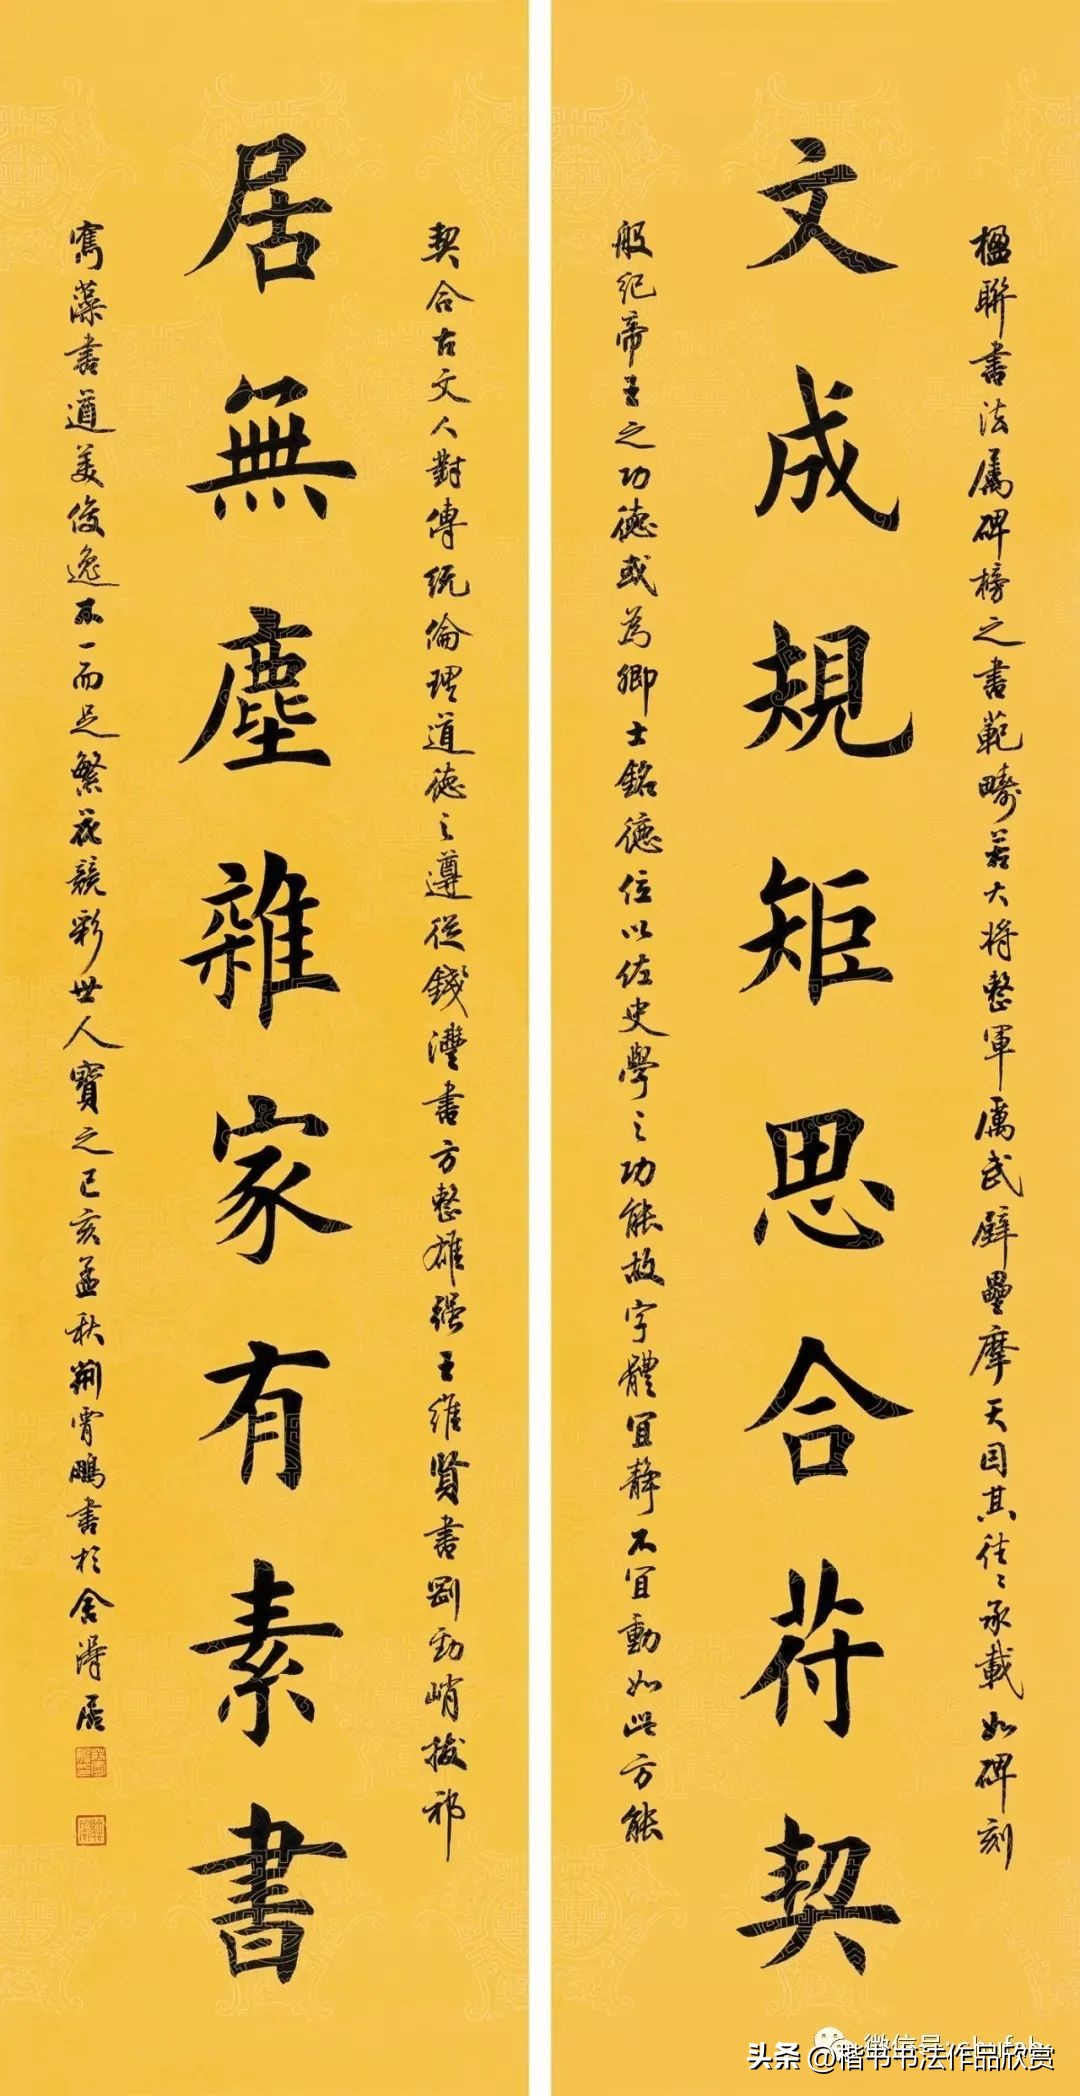 楹聯書法屬碑榜之書範疇若大將整軍厲武壁壘摩天因其往〻承載如碑刻
文成規矩思合苻契
般紀帝王之功德或為卿士銘德位以佐史學之功能故字體宜靜不宜動如此方能
契合古文人對傳統倫理道德之遵從錢灃書方整雄強王維賢書剛勁峭拔祁
居無塵雜家有素書
寯藻書遒美俊逸不一而足繁花競彩世人寶之己亥孟秋荆霄鵬書於舍得居
微信号:
头条 @楷书书法作品欣赏